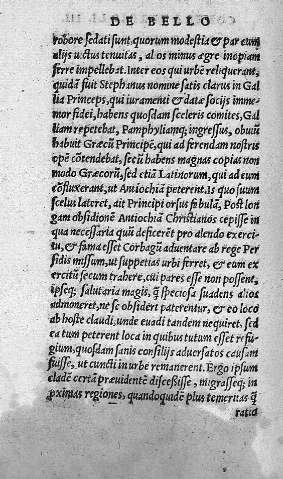 DE BELLO
robore sedati sunt, quorum modestia & par eum
alijs victus tenuitas, alios minus ægre inopiam
ferre impellebat. Inter eos qui urbē reliquerant,
quidā fuit Stephanus nomine satis clarus in Gal
lia Princeps, qui iuramenti & datæ socijs imme-
mor fidei, habens quosdam sceleris comites, Gal
liam repetebat, Pamphyliamq; ingressus, obuiū
habuit Græcū Principē, qui ad ferendam nostris
opē cōtendebat, secū habens magnas copias non
modo Græcorū, sed etiā Latinorum, qui ad eum
cōfluxerant, ut Antiochiā peterent. Is quo suum
scelus lateret, ait Principi orsus fabulā. Post lon
gam obsidionē Antiochiā Christianos cepisse in
qua necessaria quū deficerēt pro alendo exerci
tu, & fama esset Corbagū aduentare ab rege Per
sidis missum, ut suppetias urbi ferret, & eum ex
ercitū secum trahere, cui pares esse non possent,
ipseq; salutaria magis, q̄ speciosa suadens alios
admoneret, ne se obsideri paterentur, & eo loco
ab hoste claudi, unde euadi tandem nequiret. sed
ea tum peterent loca in quibus tutum esset refu-
gium, quosdam sanis consilijs aduersatos causam
fuisse, ut cuncti in urbe remanerent. Ergo ipsum
cladē certā præuidentē discessisse, migrasseq; in
proximas regiones, quandoquidē plus temeritas q̄
ratio